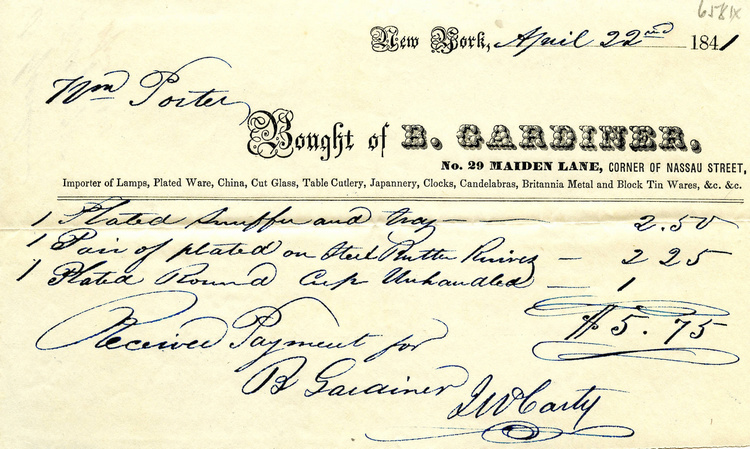 6581X
New York, April 22nd 1841
Wm Porter
Bought of B. GARDINER,
No. 29 MAIDEN LANE, CORNER OF NASSAU STREET,
Importer of Lamps, Plated Ware, China, Cut Glass, Table Cutlery, Japannery, Clocks, Candelabras, Britannia Metal and Block Tin Wares, &c. &c.
1 Plated Snuffer and Tray — 2.50
1 Pair of plated on Steel Butter Knives — 2 25
1 Plated Round Cup Unhandled — 1
$5.75
Received Payment for
B Gardiner